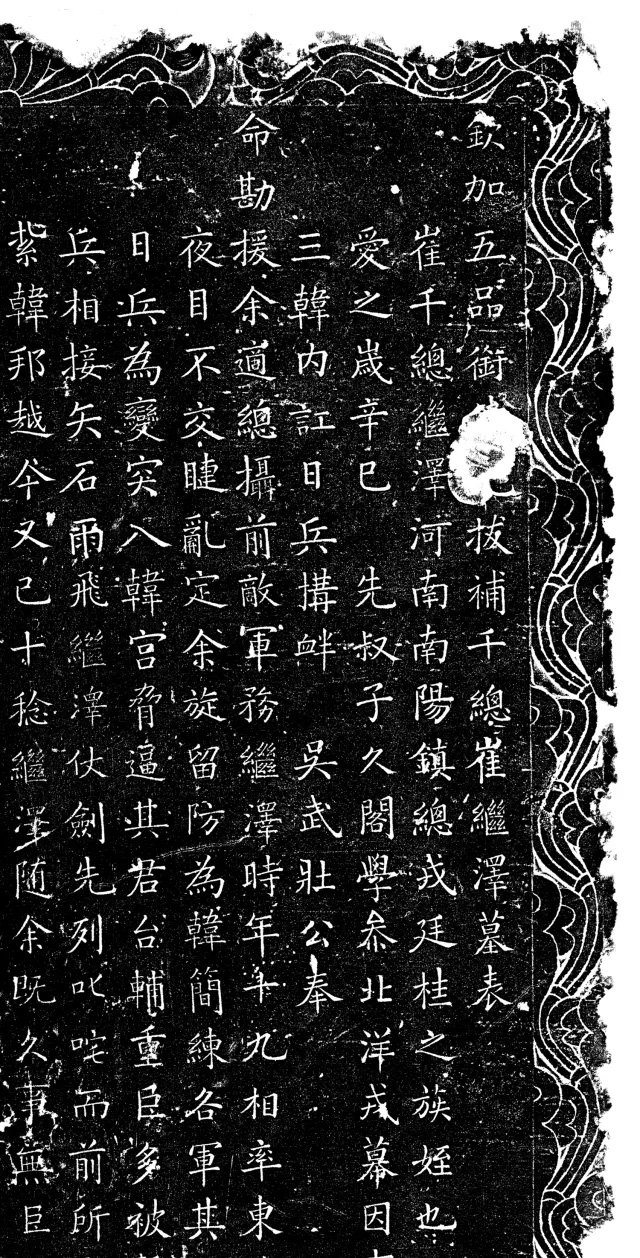 欽加五品銜拔補千總崔繼澤墓表
崔千總繼澤河南南陽鎮總戎廷桂之族姪也
愛之嵗辛巳先叔子久閣學叅北洋戎幕因
三韓内訌日兵搆衅吳武壯公奉
命勘援余適總攝前敵軍務繼澤時年十九相率東
夜目不交睫亂定余旋留防為韓簡練各軍其
日兵為變突入韓宮脅逼其君台輔重臣多被
兵相接矢石雨飛繼澤仗劍先列叱咤而前所
紮韓邦越今又已十稔繼澤随余既久事無巨